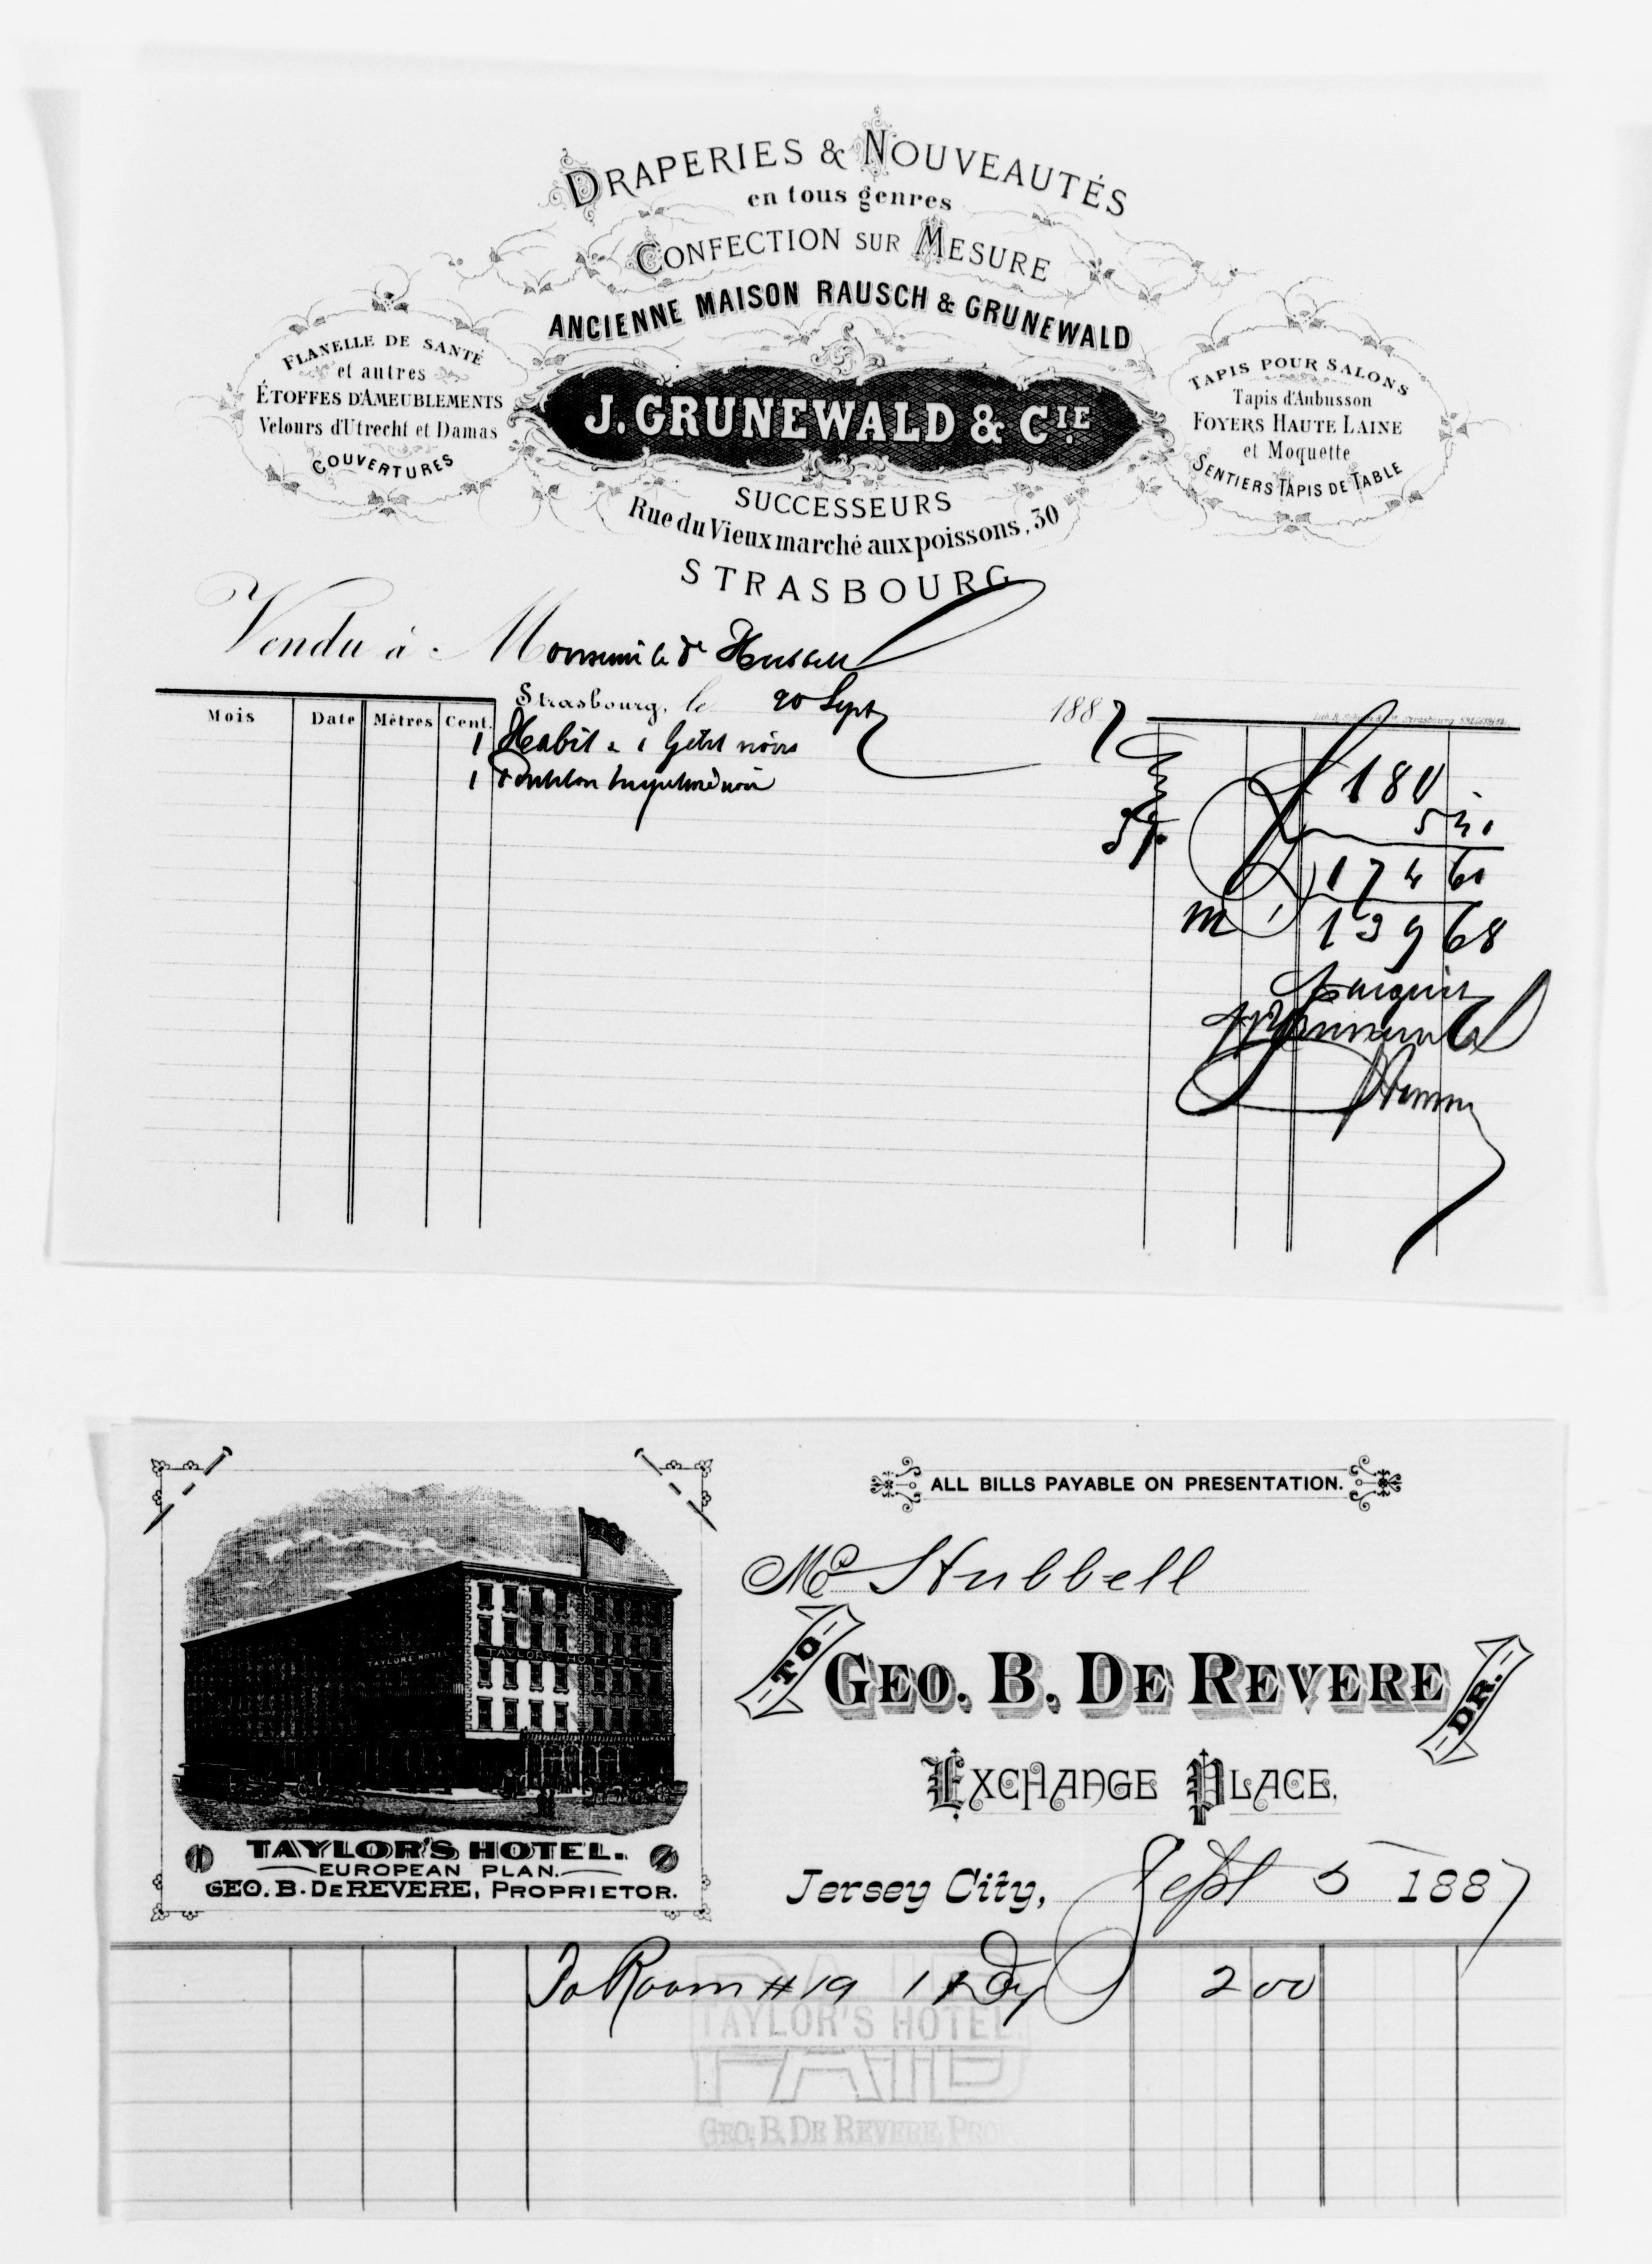 DRAPERIES & NOUVEAUTÉS
en tous genres
CONFECTION SUR MESURE
ANCIENNE MAISON RAUSCH & GRUNEWALD
FLANELLE DE SANTÉ
et autres
ÉTOFFES D'AMEUBLEMENTS
Velours d'Utrecht et Damas
COUVERTURES
J. GRUNEWALD & CIE
TAPIS POUR SALONS
Tapis d'Aubusson
FOYERS HAUTE LAINE
et Moquette
SENTIERS TAPIS DE TABLE
SUCCESSEURS
Rue du Vieux marché aux poissons, 30
STRASBOURG
Vendu à M
Strasbourg, le 20 Sept 1887
Mois Date Mètres Cent.
1 Habit & 1 Gilet noirs 180
1 noir
3% 5 40
174 60
M 139 68
ALL BILLS PAYABLE ON PRESENTATION.
Mr Hubbell
TO GEO. B. DE REVERE DR.
EXCHANGE PLACE,
Jersey City, Sept 5 1887
TAYLORS HOTEL
TAYLORS HOTEL
RESTAURANT
TAYLOR'S HOTEL.
EUROPEAN PLAN.
GEO. B. DEREVERE, PROPRIETOR.
To Room # 19 1 Dy 2 00
PAID
TAYLOR'S HOTEL.
PAID
GEO. B. DE REVERE, PROP